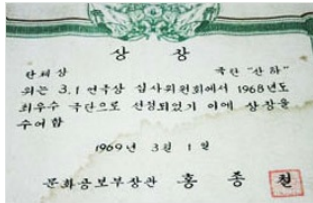 상 장
단체상 극단 "산하"
위는 3.1 연극상 심사위원회에서 1968년도
최우수 극단으로 선정되었기 이에 상장을
수여함
1969년 3월 1일
문화공보부장관 홍 종 철